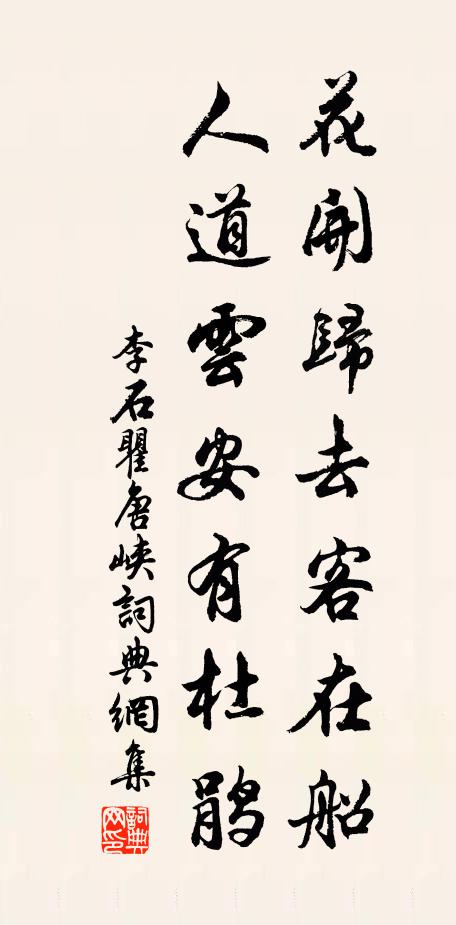 花開歸去客在船
人道雲安有杜鹃
李石瞿唐峽詞典網集
詞典網印